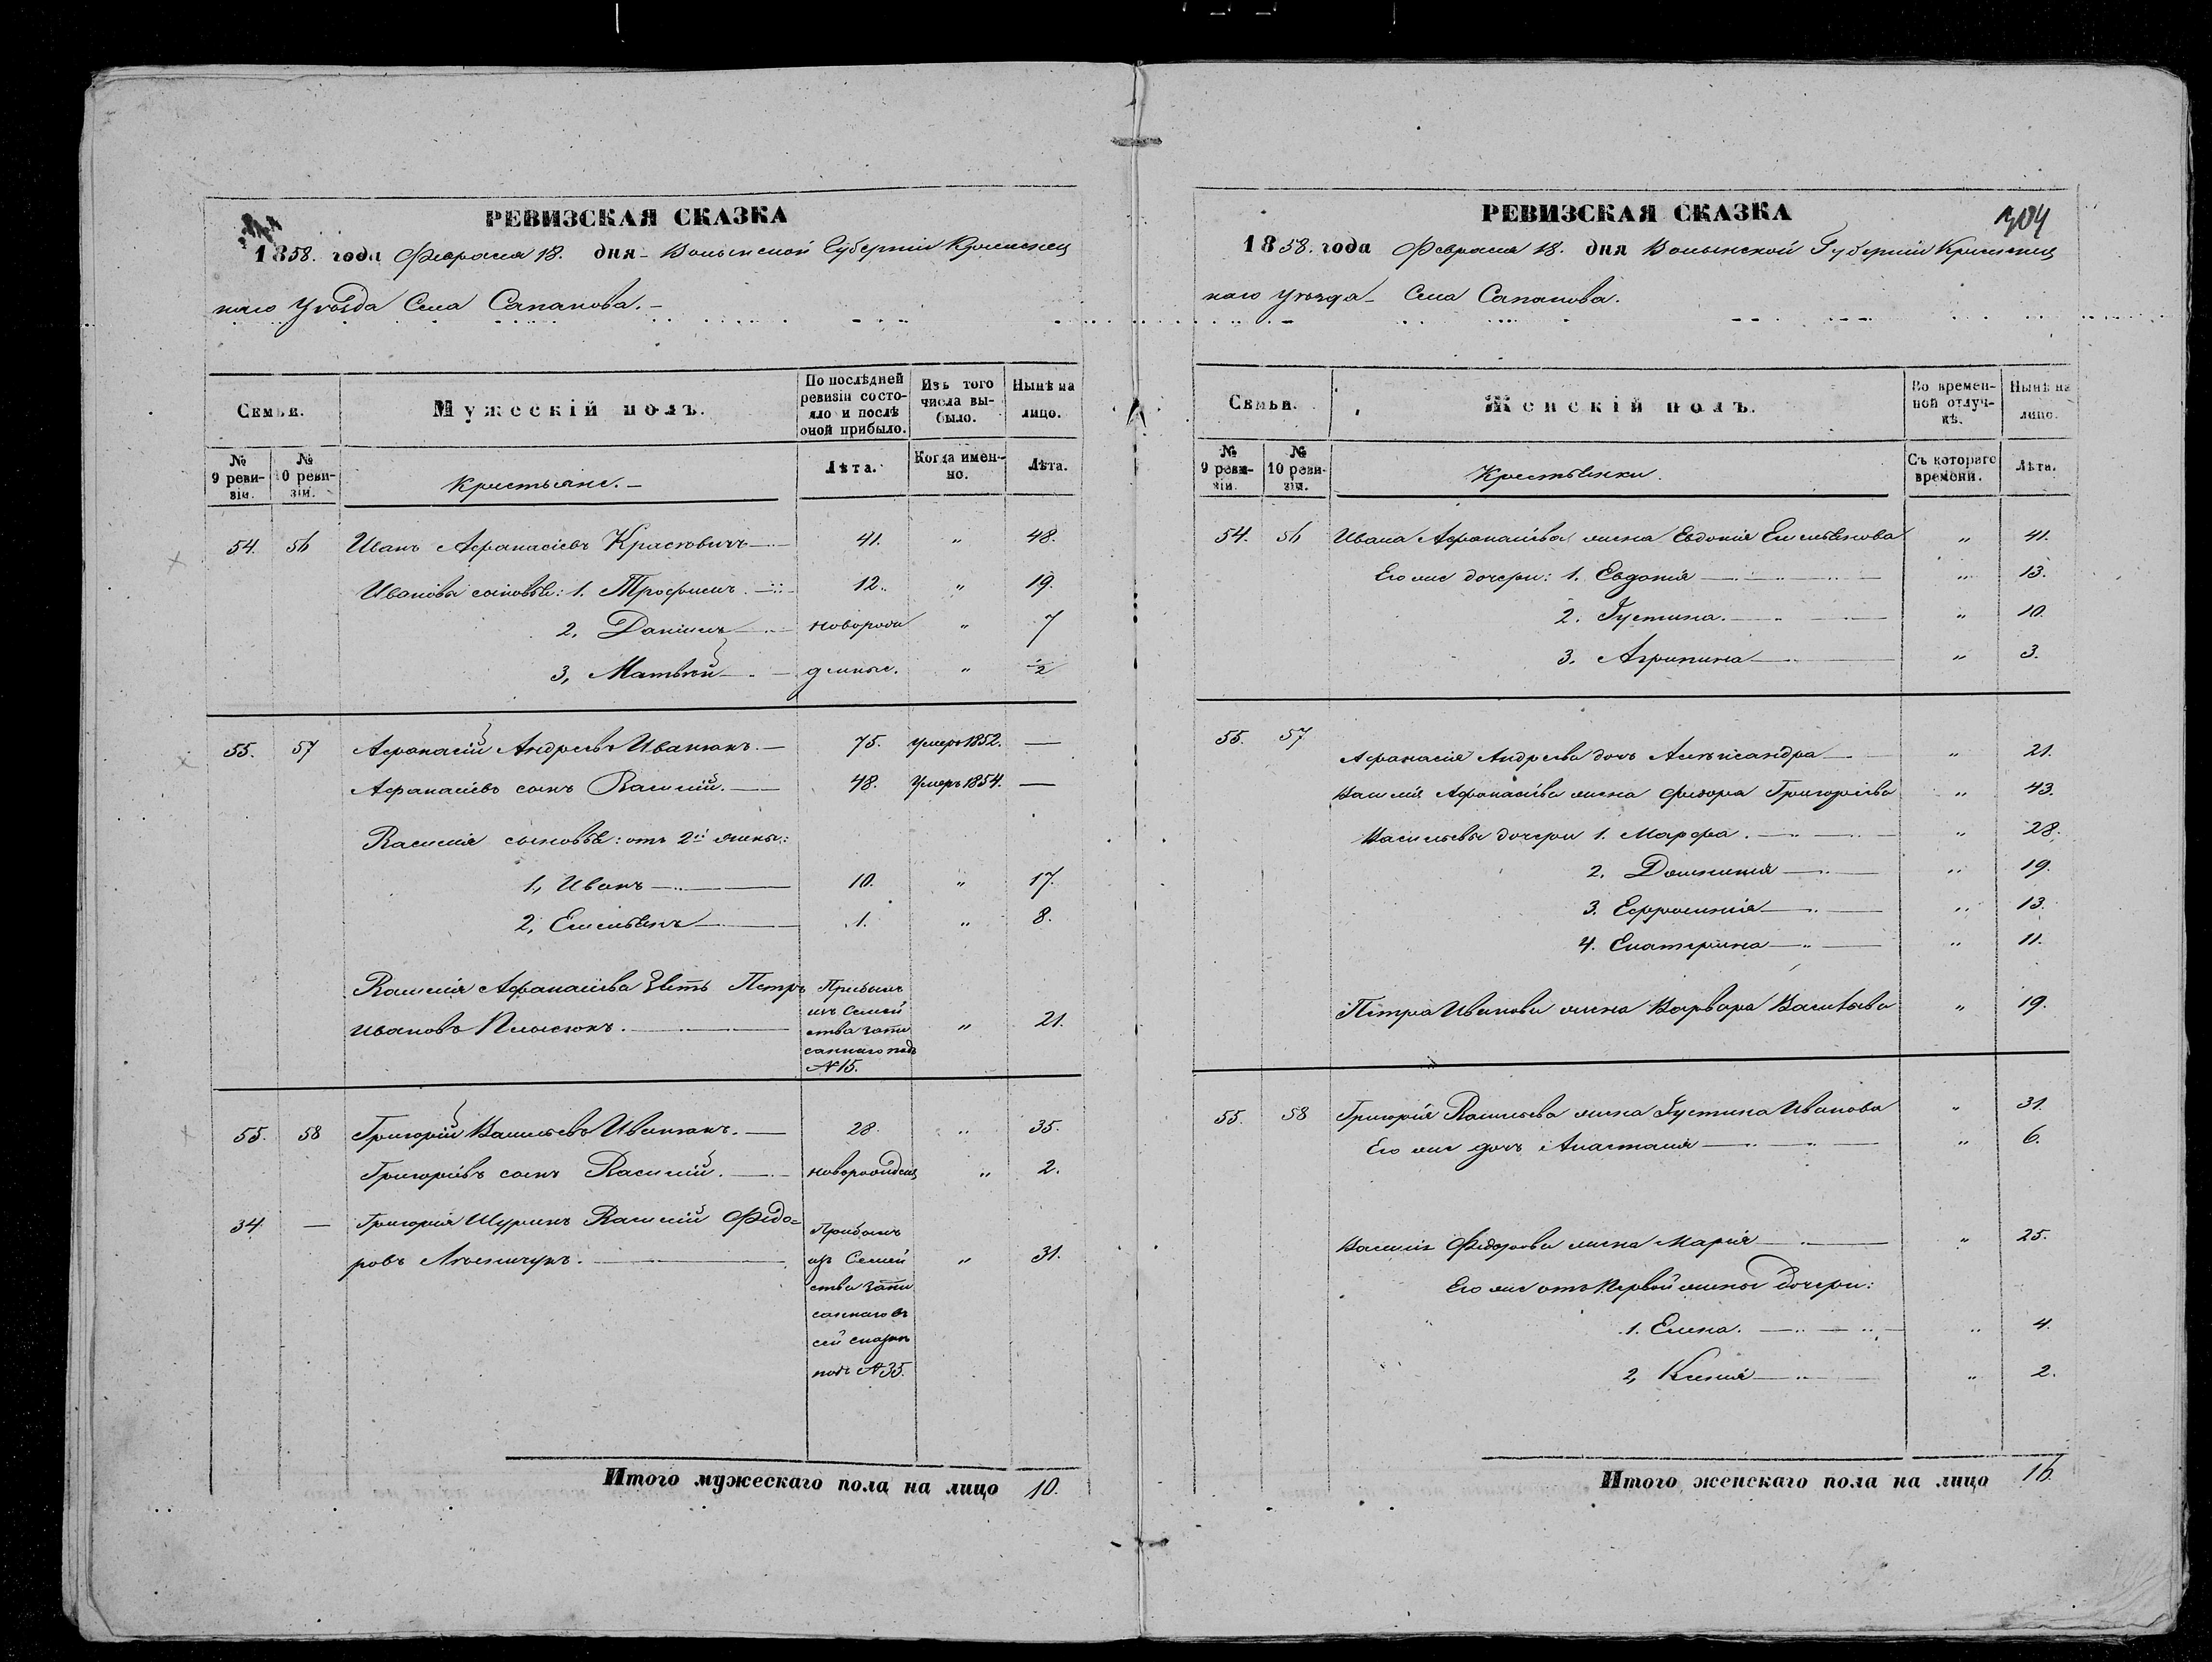 РЕВИЗСКАЯ СКАЗКА
1858. года Февраля 18. дня Волынской Губерніи Кременец
каго Уѣзда Села Сапанова.
Семьи.
Мужескій полъ.
По послѣдней ревизіи состояло и послѣ оной прибыло.
Изъ того числа выбыло.
Нынѣ на лицо.
№ 9 ревизіи.
№ 10 ревизіи.
Крестьяне.
Лѣта.
Когда именно.
Лѣта.
54. 56 Иванъ Афанасіевъ 41. " 48.
Ивановы сыновья: 1. Трофимъ. 12. " 19.
2, Даніилъ новорож " 7
3, Матвѣй денные. " ½
55. 57 Афанасій Андреевъ Иванюкъ. 75. умеръ 1852. —
Афанасіевъ сынъ Василій. 48. Умеръ 1854. —
Василія сыновья: отъ 2й жены:
1, Иванъ 10. " 17.
2, Емельянъ 1. " 8.
Василія Афанасіева Зять Петръ Прибылъ
Ивановъ изъ Семей
ства запи " 21.
саннаго подъ
№15.
55. 58 Григорій Васильевъ Иванюкъ. 28. " 35.
Григоріевъ сынъ Василій. новорожден " 2.
34. — Григорія Шуринъ Василій Федо=
ровъ Прибылъ
изъ Семей " 31.
ства запи
саннаго въ
сей сказкѣ
подъ №35.
Итого мужескаго пола на лицо 10.
РЕВИЗСКАЯ СКАЗКА 304
1858. года Февраля 18. дня Волынской Губерніи Кременец
каго уѣзда Села Сапанова.
Семьи.
Женскій полъ.
Во временной отлучкѣ.
Нынѣ на лицо.
№ 9 ревизіи.
№ 10 ревизіи.
Крестьянки.
Съ котораго времени.
Лѣта.
54. 56 Ивана Афанасіева жена Евдокія Емельянова " 41.
Его же дочери: 1. Евдокія " 13.
2. Густина. " 10.
3. Агрипина " 3.
55. 57
Афанасія Андреева дочь Александра " 21.
Василія Афанасіева жена Григоріева " 43.
Васильевы дочери 1. Марфа. " 28.
2. Домникія " 19.
3. Ефросинія " 13.
4. Екатерина " 11.
Петра Иванова жена Варвара Васильева " 19.
55. 58 Григорія Васильева жена Густина Иванова " 31.
Его же дочь Анастасія " 6.
Василія Федорова жена Марія " 25.
Его же отъ первой жены дочери:
1. Елена. " 4.
2, Ксенія " 2.
Итого женскаго пола на лицо 16.